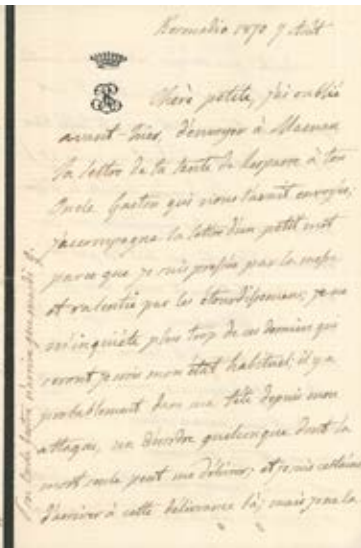 Kermadio 1870 7 Août
Chère petite, j'ai oublié
avant-hier, d'envoyer à Maman
la lettre de ta tante de Lesparre à ton
Oncle Gaston qui nous l'avait envoyée,
j'accompagne la lettre d'un petit mot
parce que je suis pressée par la messe
et ralentie par les étourdissemens; je ne
m'inquiète plus trop de ces derniers qui
seront je crois mon état habituel; il y a
probablement dans ma tête depuis mon
attaque, un désordre quelconque dont la
mort seule peut me délivrer; et je suis certaine
d'arriver à cette délivrance là; mais je ne la
Ton Oncle Gaston n'arrive que mardi 9.